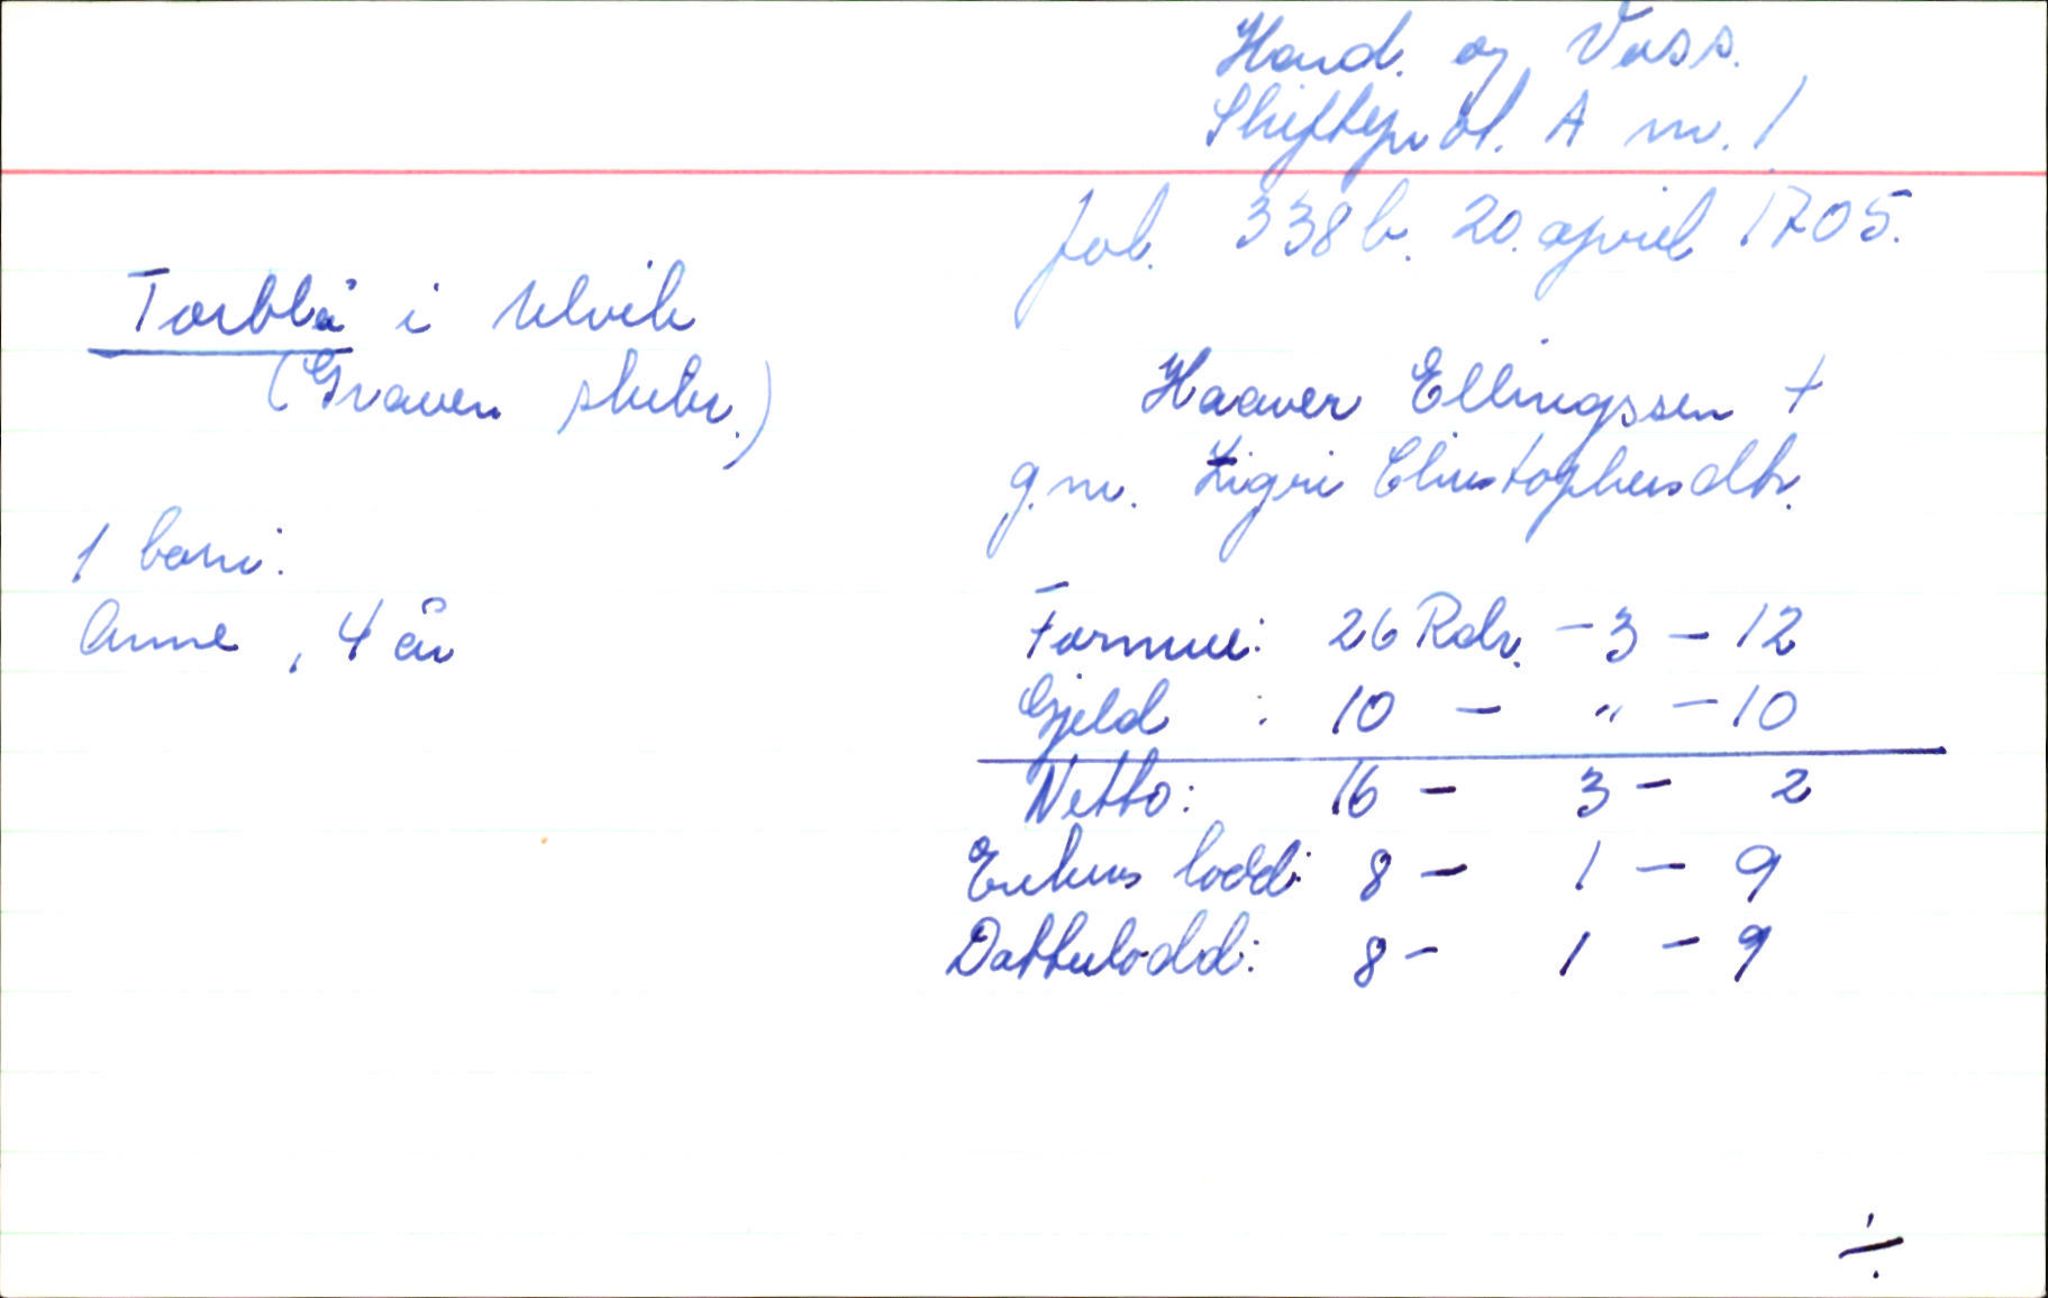 Hard. og Voss.
Skifteprot. A nr. 1
fol. 338b. 20. april 1705.
Torblå i Ulvik
(Graven skibr.)
Haaver Ellingssen +
g.m. Zigri Christophersdtr.
1 barn:
Anne, 4 år
Formue: 26 Rdr. - 3 - 12
Gjeld : 10 - " - 10
Netto: 16 - 3 - 2
Enkens lodd: 8 - 1 - 9
Datterlodd: 8 - 1 - 9
÷